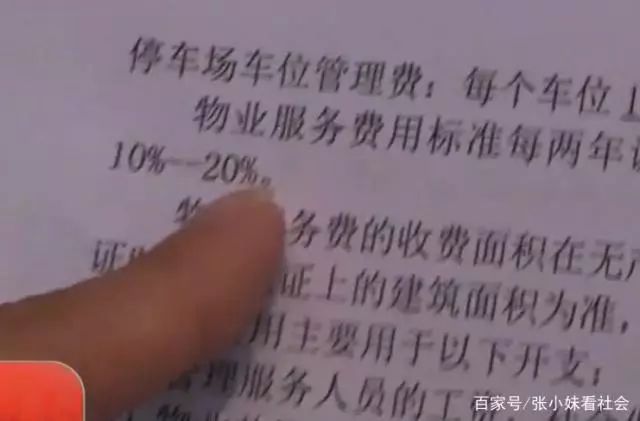 停车场车位管理费：每个车位
物业服务费用标准每两年
10%--20%。
务费的收费面积在无
证上的建筑面积为准，
用主要用于以下开支：
管理服务人员的工资
百家号/张小妹看社会